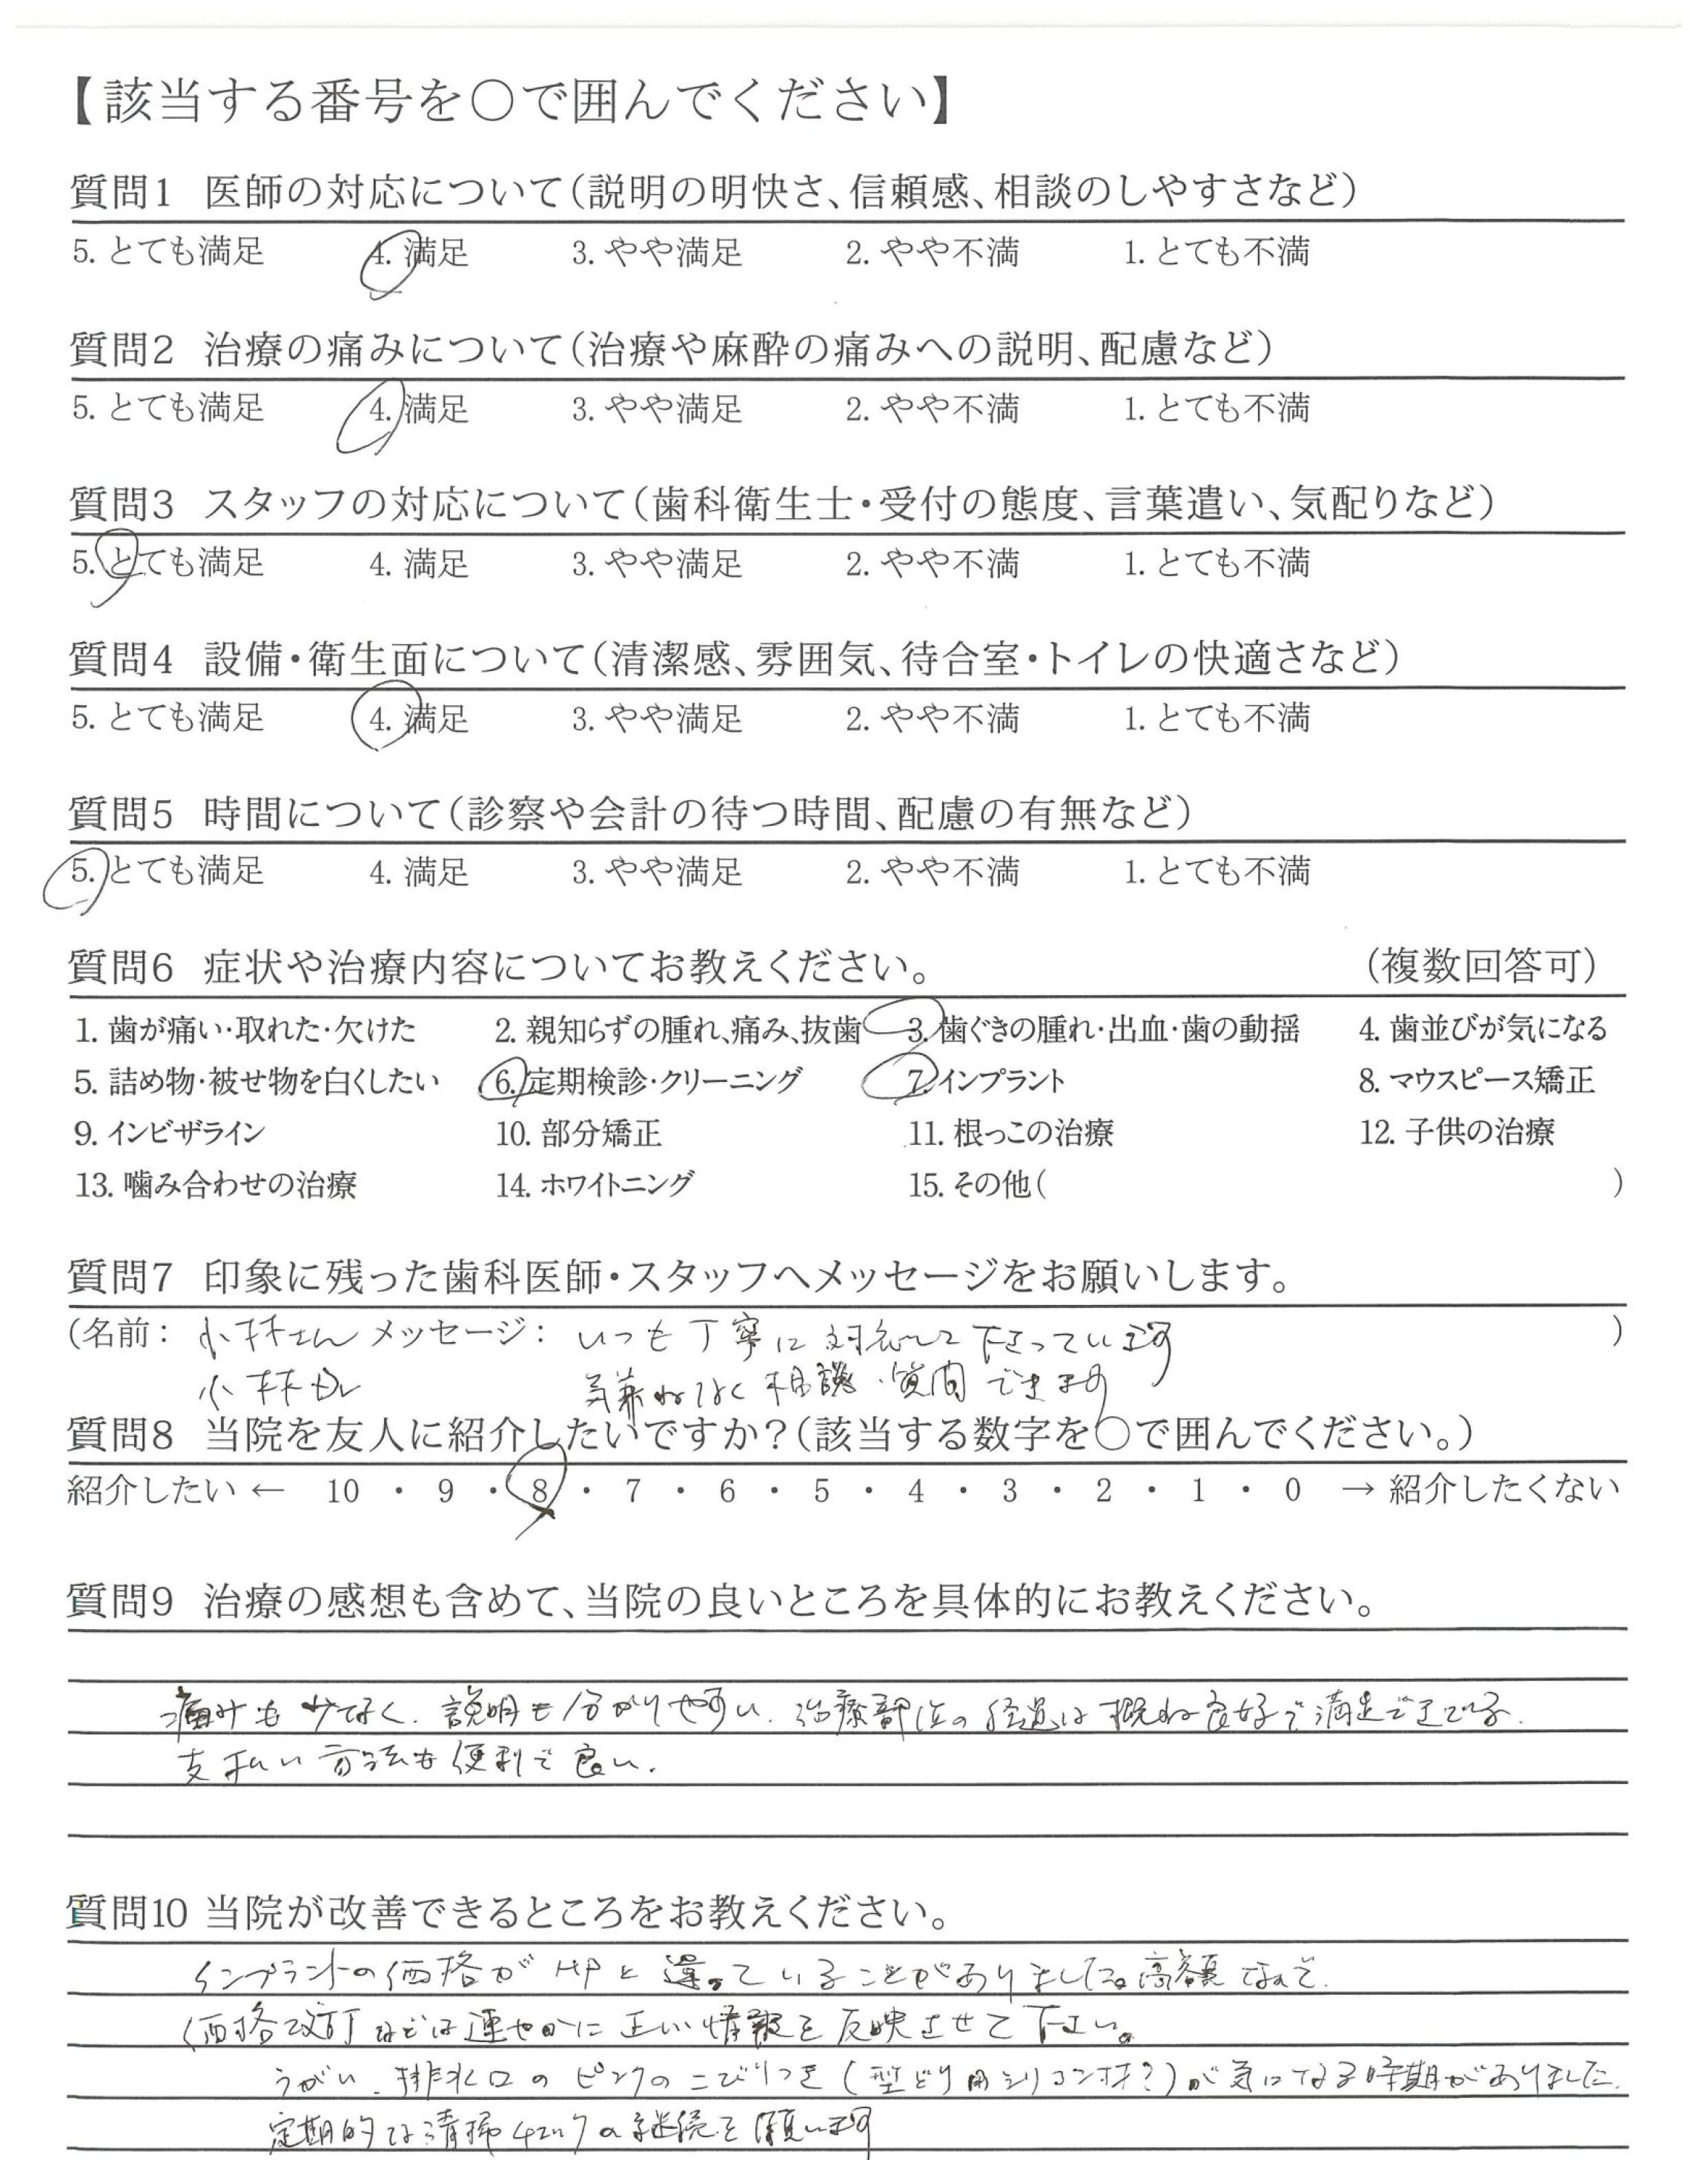 【該当する番号を○で囲んでください】
質問1 医師の対応について(説明の明快さ、信頼感、相談のしやすさなど)
5. とても満足 4. 満足 3. やや満足 2. やや不満 1. とても不満
質問2 治療の痛みについて(治療や麻酔の痛みへの説明、配慮など)
5. とても満足 4. 満足 3. やや満足 2. やや不満 1. とても不満
質問3 スタッフの対応について(歯科衛生士・受付の態度、言葉遣い、気配りなど)
5. とても満足 4. 満足 3. やや満足 2. やや不満 1. とても不満
質問4 設備・衛生面について(清潔感、雰囲気、待合室・トイレの快適さなど)
5. とても満足 4. 満足 3. やや満足 2. やや不満 1. とても不満
質問5 時間について(診察や会計の待つ時間、配慮の有無など)
5. とても満足 4. 満足 3. やや満足 2. やや不満 1. とても不満
質問6 症状や治療内容についてお教えください。 (複数回答可)
1. 歯が痛い・取れた・欠けた 2. 親知らずの腫れ、痛み、抜歯 3. 歯ぐきの腫れ・出血・歯の動揺 4. 歯並びが気になる
5. 詰め物・被せ物を白くしたい 6. 定期検診・クリーニング 7. インプラント 8. マウスピース矯正
9. インビザライン 10. 部分矯正 11. 根っこの治療 12. 子供の治療
13. 噛み合わせの治療 14. ホワイトニング 15. その他( )
質問7 印象に残った歯科医師・スタッフへメッセージをお願いします。
(名前: 小林さん メッセージ: いつも丁寧に対応して下さっています )
小林Dr 気兼ねなく相談・質問できます
質問8 当院を友人に紹介したいですか?(該当する数字を○で囲んでください。)
紹介したい ← 10 ・ 9 ・ 8 ・ 7 ・ 6 ・ 5 ・ 4 ・ 3 ・ 2 ・ 1 ・ 0 → 紹介したくない
質問9 治療の感想も含めて、当院の良いところを具体的にお教えください。
痛みも少なく、説明も分かりやすい。治療部位の経過は概ね良好で満足できている。
支払い方法も便利で良い。
質問10 当院が改善できるところをお教えください。
インプラントの価格がHPと違っていることがありました。高額なので、
価格改訂などは速やかに正しい情報を反映させて下さい。
うがい、排水口のピンクのこびりつき(型どり用シリコン材?)が気になる時期がありました。
定期的な清掃チェックの継続を願います